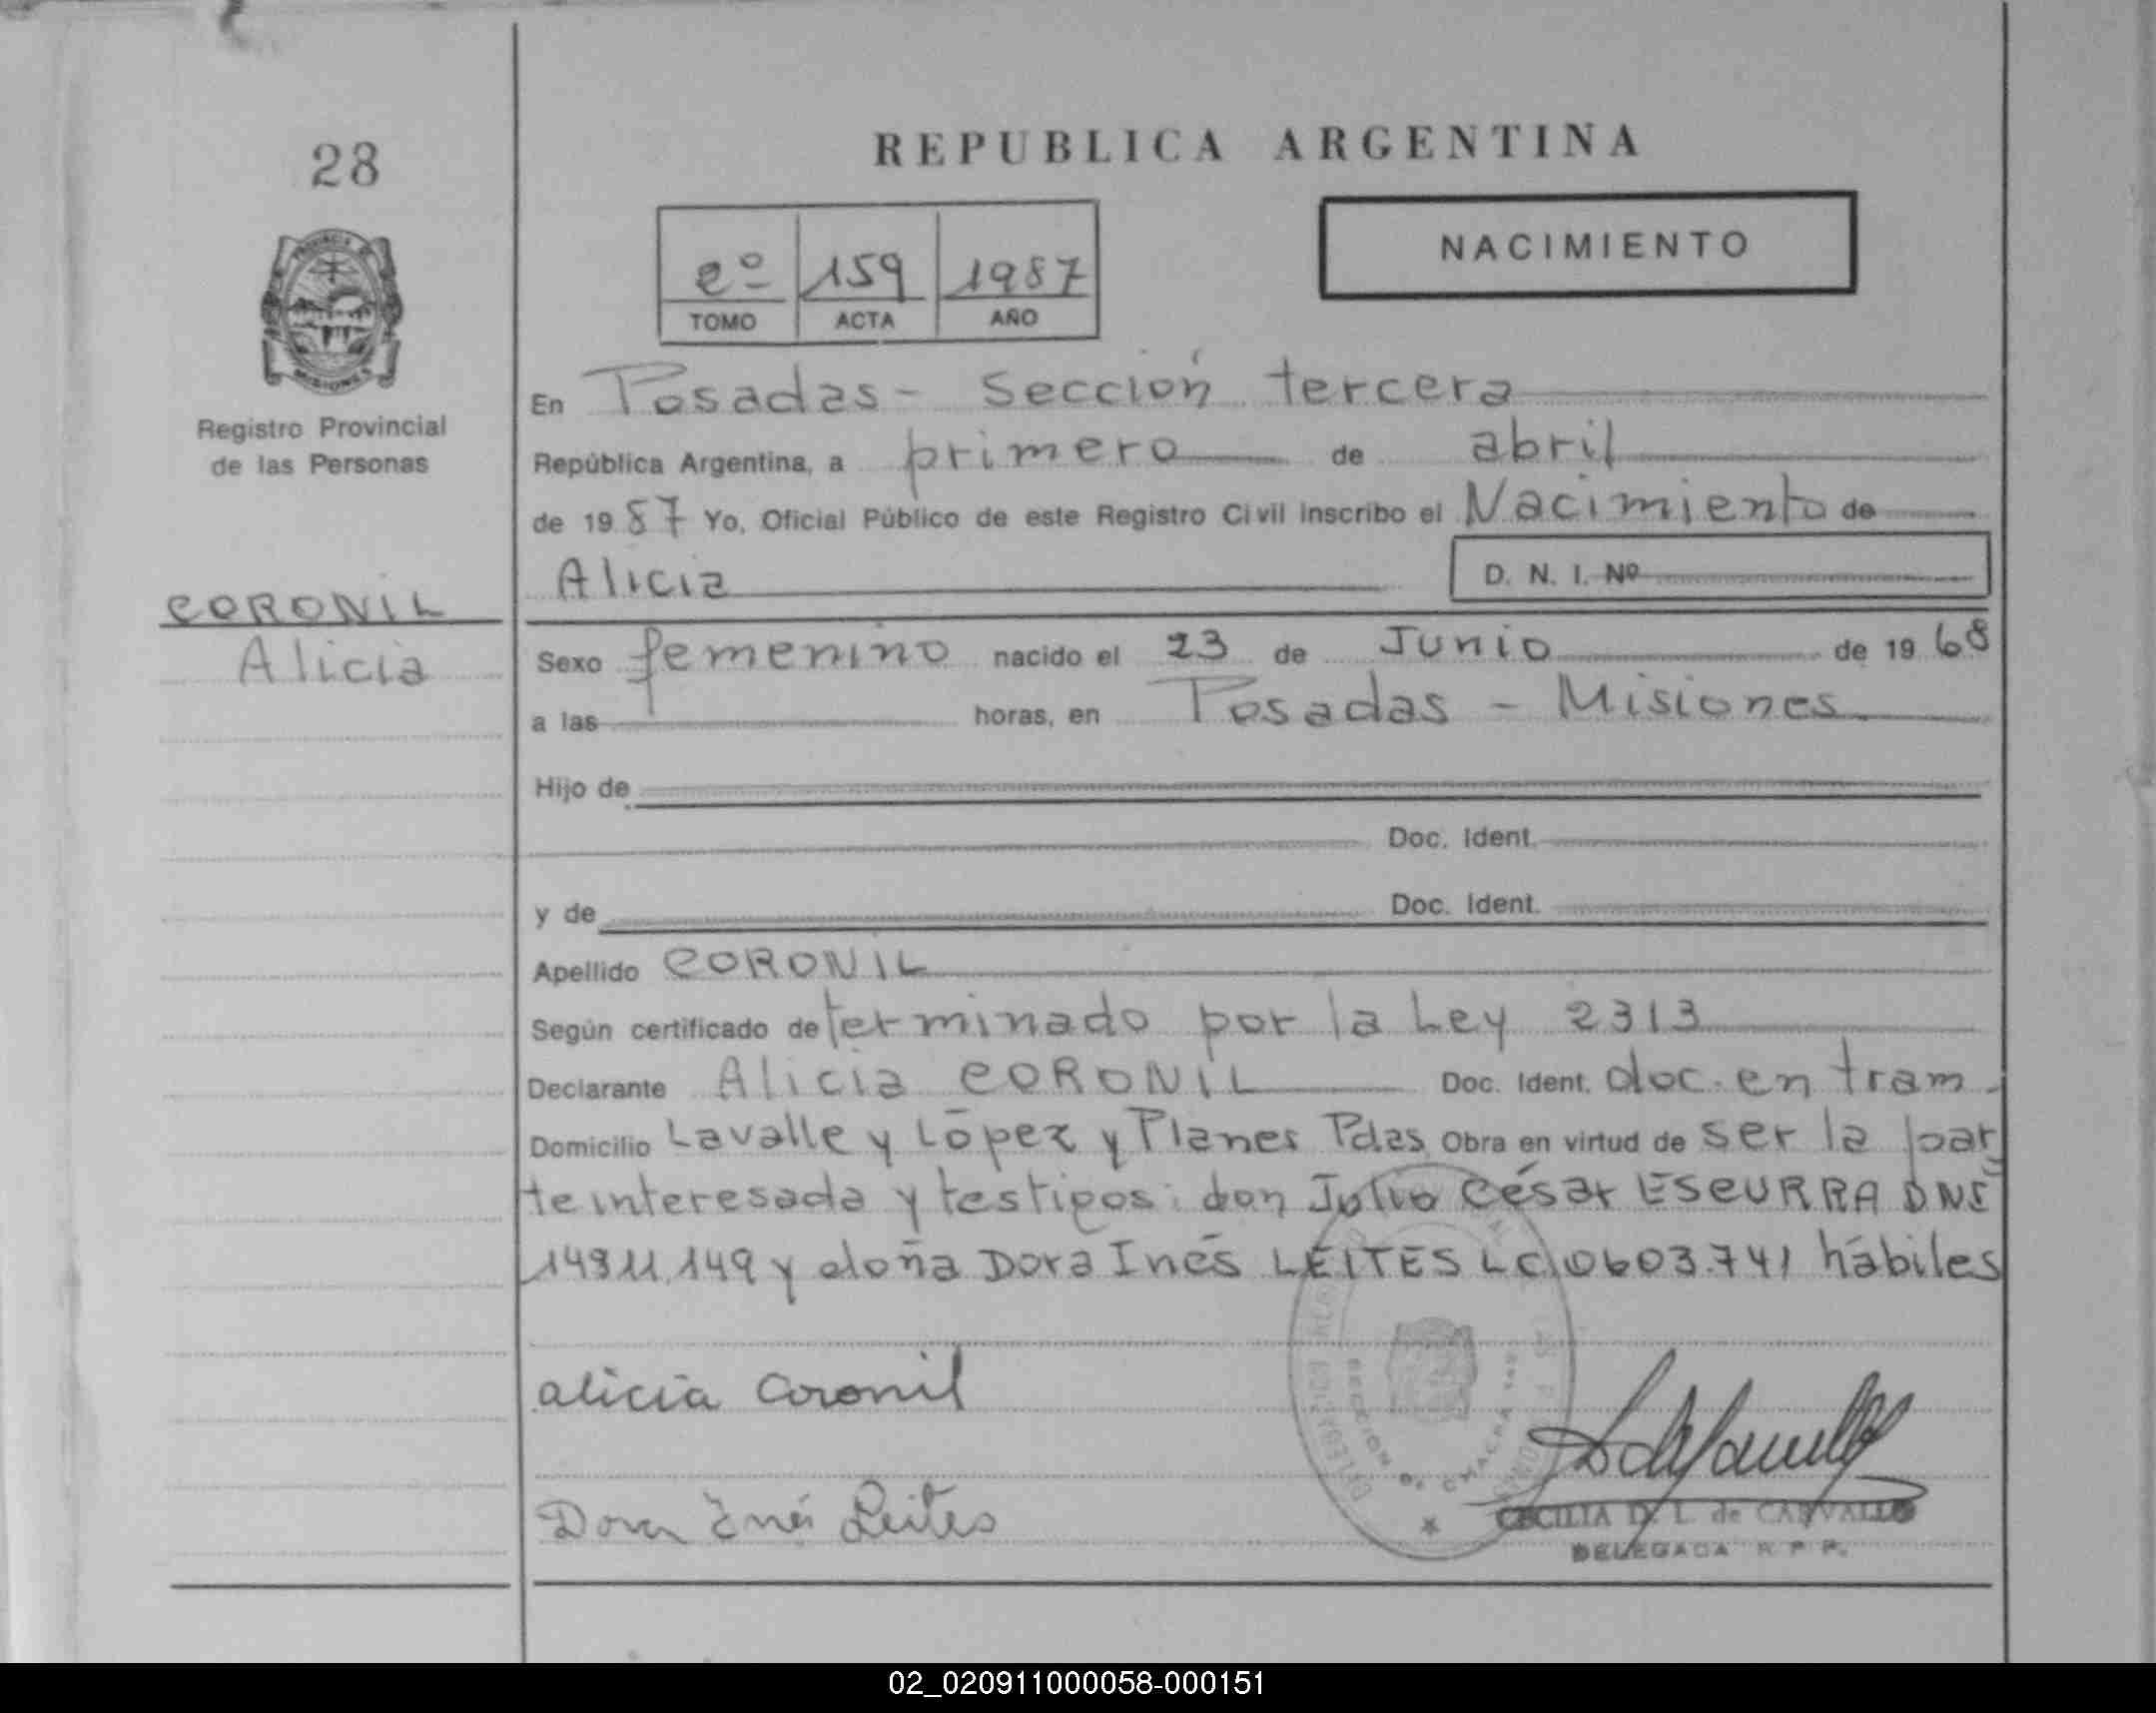 28
REPUBLICA ARGENTINA
NACIMIENTO
2º 159 1987
TOMO ACTA AÑO
PROVINCIA DE
MISIONES
Registro Provincial
de las Personas
CORONIL
Alicia
En Posadas - Sección tercera
República Argentina, a primero de abril
de 1987 Yo, Oficial Público de este Registro Civil inscribo el Nacimiento de
Alicia D. N. I. Nº
Sexo femenino nacido el 23 de Junio de 1968
a las horas, en Posadas - Misiones
Hijo de
Doc. Ident.
y de Doc. Ident.
Apellido CORONIL
Según certificado determinado por la Ley 2313
Declarante Alicia CORONIL Doc. Ident. doc. en tram.
Domicilio Lavalle y López y Planes Pdas Obra en virtud de ser la par
te interesada y testigos: don Julio César ESCURRA DNI
14911.149 y doña Dora Inés LEITES LC 0603.741 hábiles
alicia Coronil
Dora Inés Leites
CECILIA D. L. de CARVALLO
DELEGADA R. P. P.
02_020911000058-000151